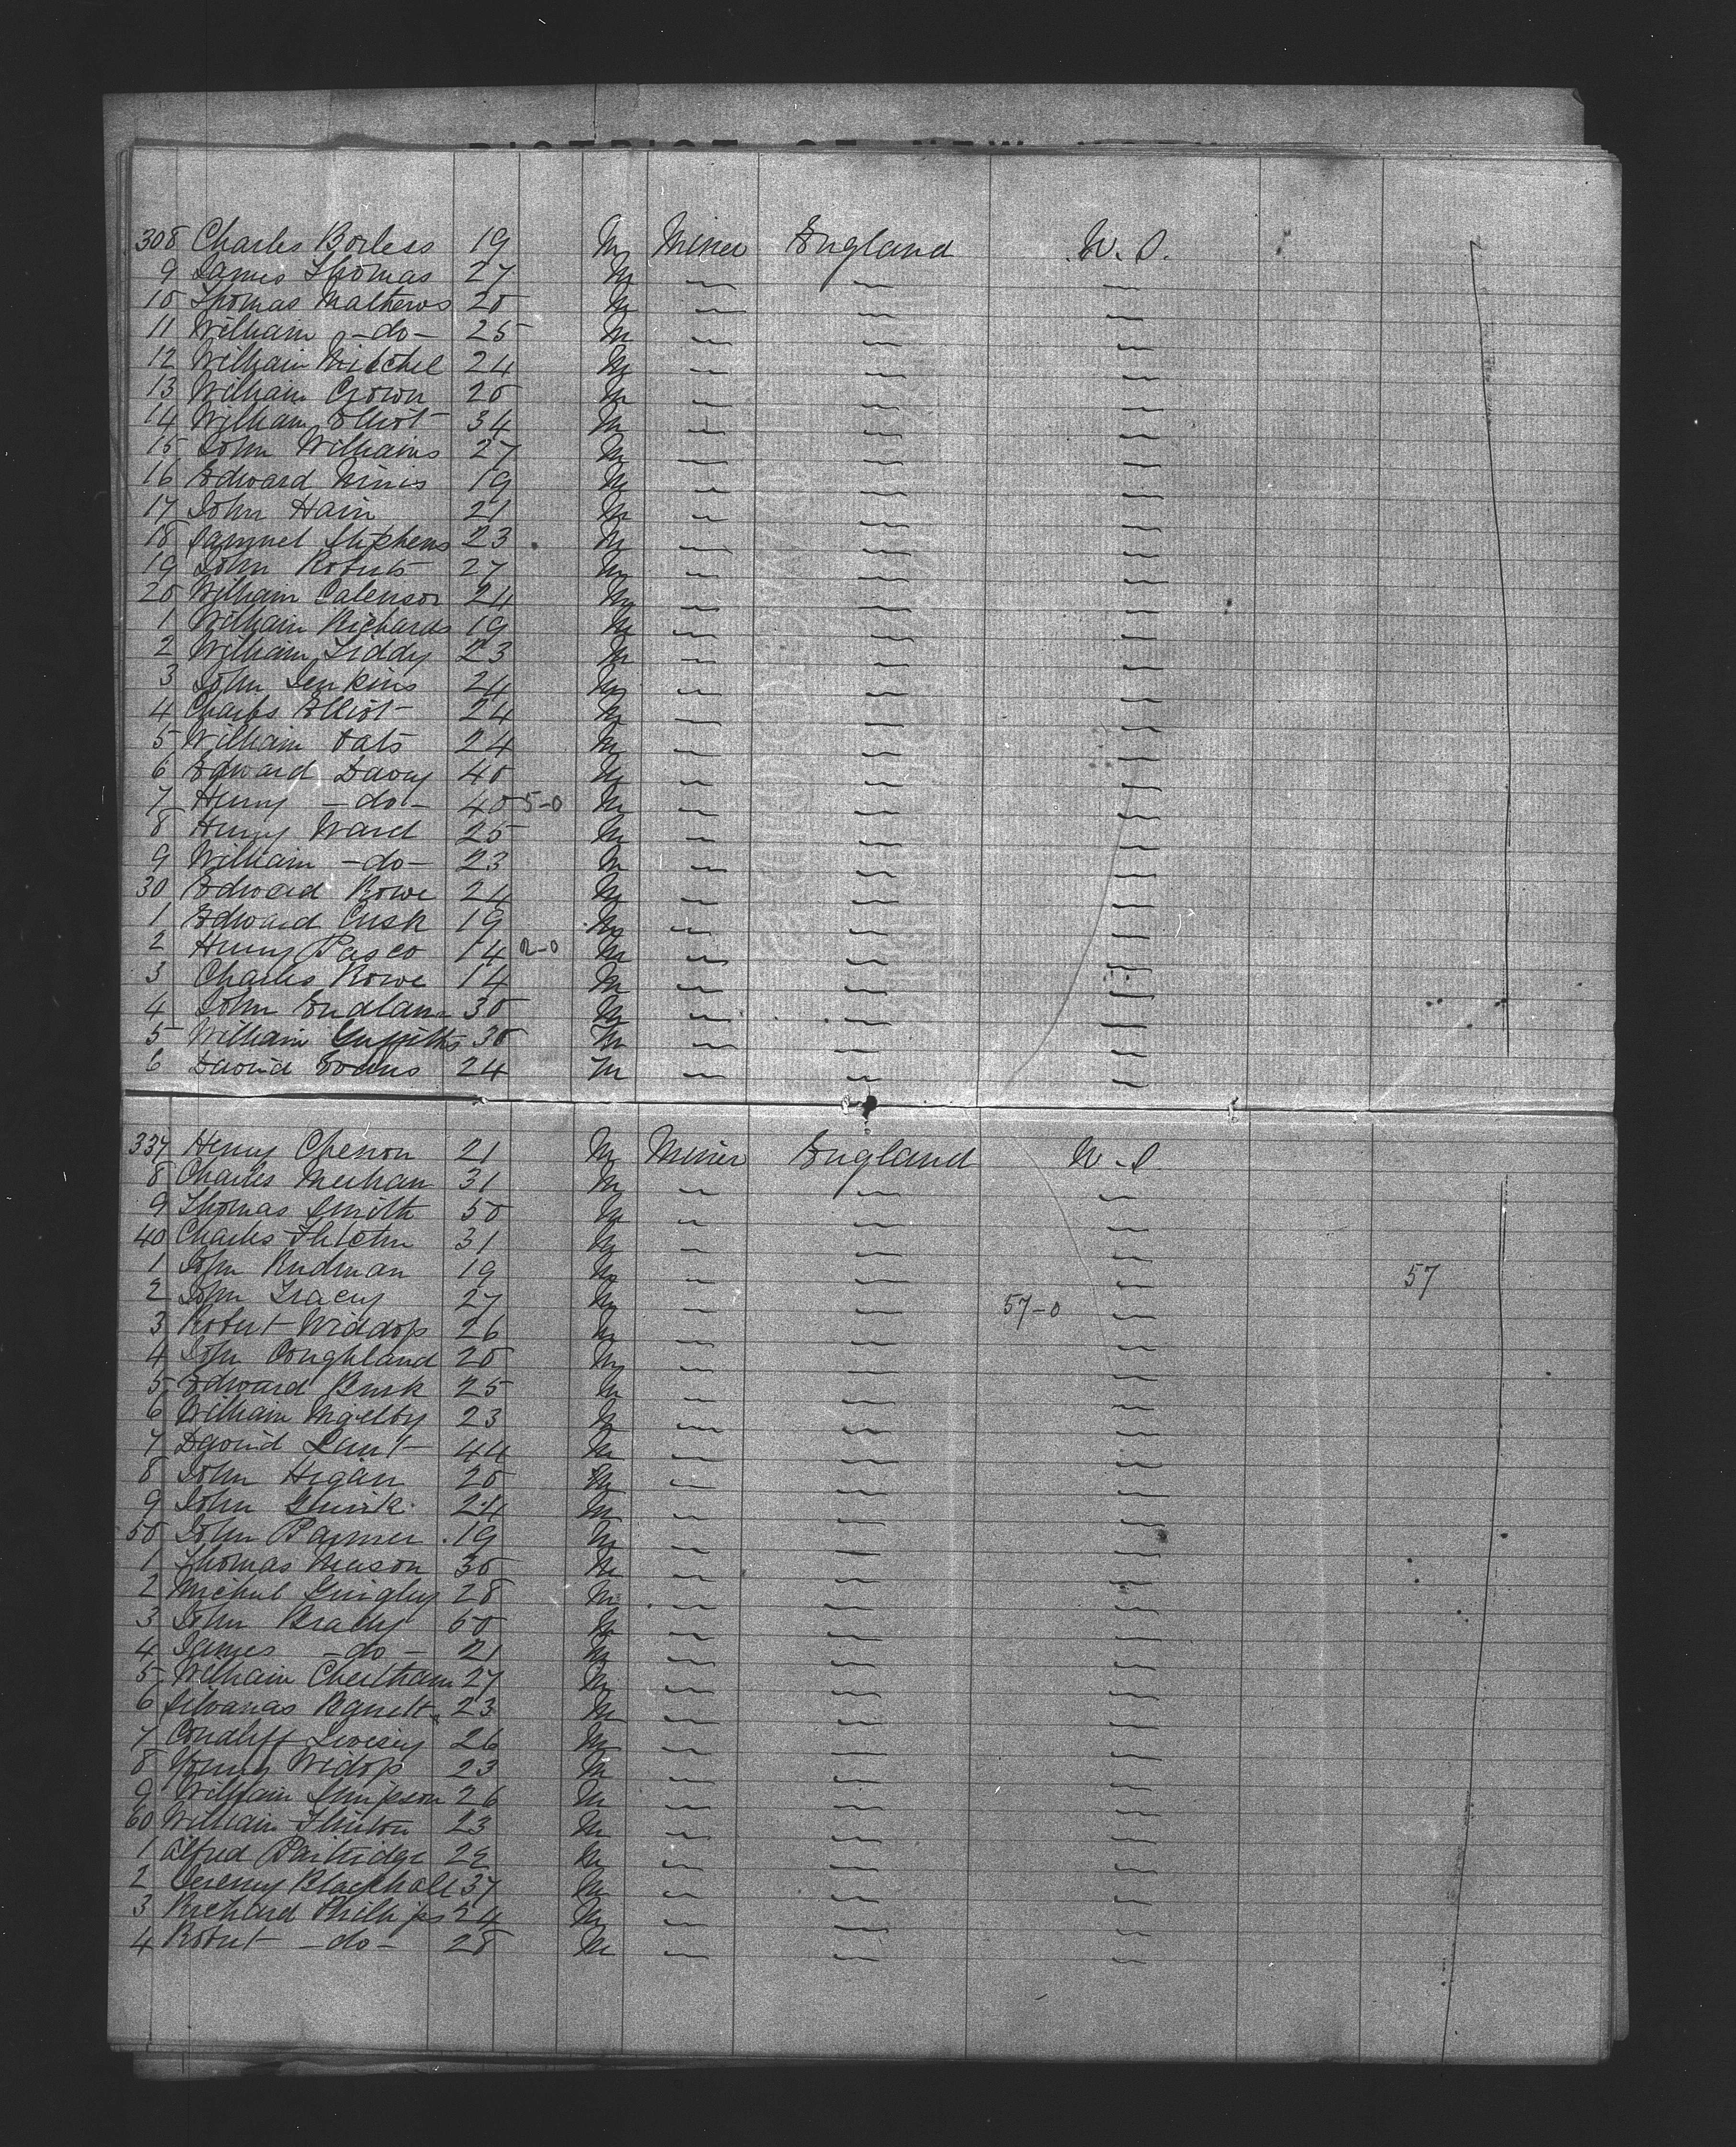 DISTRICT OF NEW YORK
308 Charles Borless 19 M Miner England U.S.
9 James Thomas 27 M " " "
10 Thomas Mathews 20 M " " "
11 William -do- 25 M " " "
12 William Mitchel 24 M " " "
13 William Crown 20 M " " "
14 William Elliot 34 M " " "
15 John Williams 27 M " " "
16 Edward Ninis 19 M " " "
17 John Hain 21 M " " "
18 Samuel Stephens 23 M " " "
19 John Roberts 27 M " " "
20 William Calenson 24 M " " "
1 William Richards 19 M " " "
2 William Liddy 23 M " " "
3 John Jenkins 24 M " " "
4 Charles Elliot 24 M " " "
5 William Oats 24 M " " "
6 Edward Davy 40 M " " "
7 Henry -do- 40 5-0 M " " "
8 Henry Ward 25 M " " "
9 William -do- 23 M " " "
30 Edward Rowe 24 M " " "
1 Edward Cusk 19 M " " "
2 Henry Pasco 14 2-0 M " " "
3 Charles Rowe 14 M " " "
4 John 30 M " " "
5 William Griffiths 30 M " " "
6 David Evans 24 M " " "
337 Henry 21 M Miner England U.S
8 Charles Meehan 31 M " " "
9 Thomas Smith 50 M " " "
40 Charles Fletcher 31 M " " "
1 John Rudman 19 M " " " 57
2 John Tracey 27 M " " 57-0 "
3 Robert Widdop 26 M " " "
4 John Coughland 20 M " " "
5 Edward Burk 25 M " " "
6 William Maelby 23 M " " "
7 David Lant 44 M " " "
8 John Hegan 20 M " " "
9 John Quirk 24 M " " "
50 John Barmer 19 M " " "
1 Thomas Meason 30 M " " "
2 Michel Quigley 28 M " " "
3 John Brady 60 M " " "
4 James -do- 21 M " " "
5 William Cheetham 27 M " " "
6 Silvanas 23 M " " "
7 Condliff Livesey 26 M " " "
8 Widop 23 M " " "
9 William Simpson 26 M " " "
60 William Flinton 23 M " " "
1 Alfred Partridge 22 M " " "
2 Jeremy Blackhall 37 M " " "
3 Richard Phillips 24 M " " "
4 Robert -do- 28 M " " "